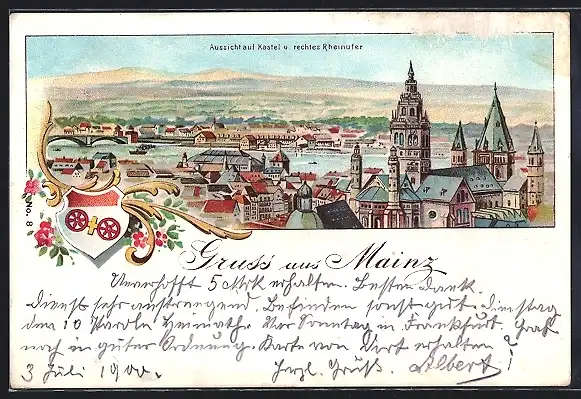 Aussicht auf Kastel u. rechtes Rheinufer
No. 8
Gruss aus Mainz
Unverhofft 5 Mrk erhalten. Besten Dank.
Dienst sehr anstrengend. Befinden sonst gut. Dienstag
den 10 Parole Heimath. Vor Sonntag in Frankfurt.
noch in guter Ordnung. Karte von dort erhalten?
3 Juli 1900. Herzl. Gruß. Albert!